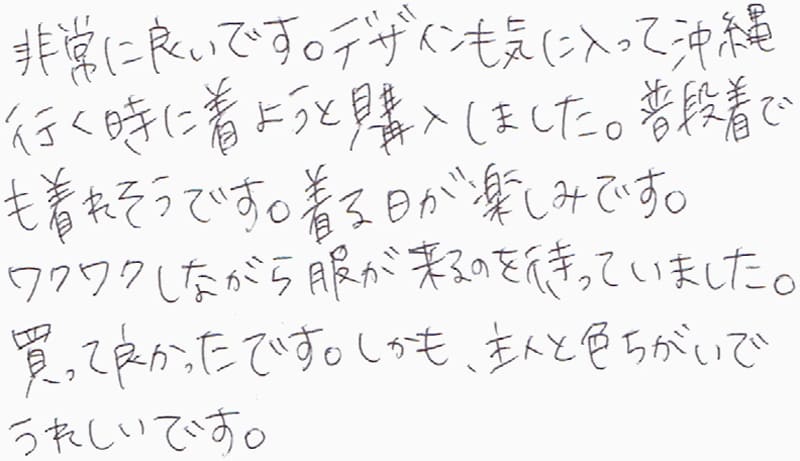 非常に良いです。デザインも気に入って沖縄
行く時に着ようと購入しました。普段着で
も着れそうです。着る日が楽しみです。
ワクワクしながら服が来るのを待っていました。
買って良かったです。しかも、主人と色ちがいで
うれしいです。